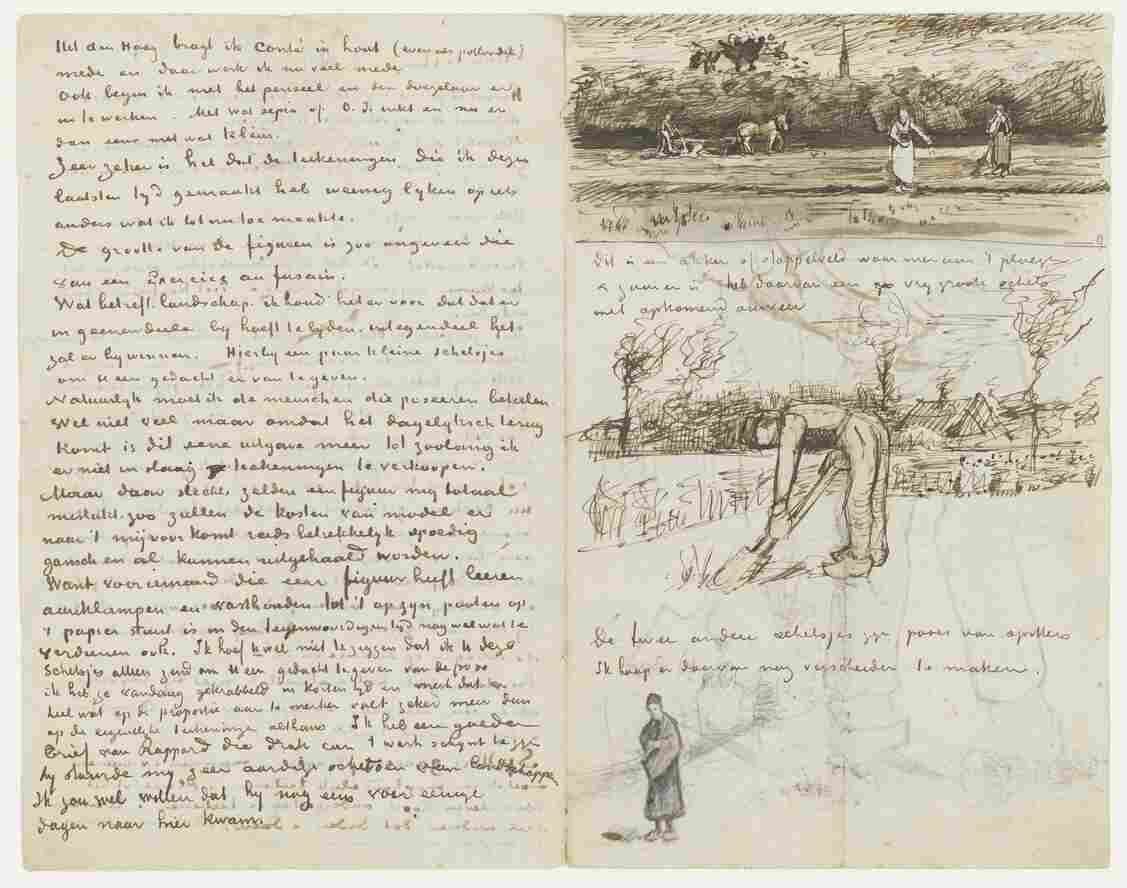 Uit den Haag bragt ik Conté in hout (evenals potlooden)
mede en daar werk ik nu veel mede.
Ook begin ik met het penseel en den doezelaar er
in te werken. Met wat sepia of O.I. inkt en nu en
dan eens met wat kleur.
Zeer zeker is het dat de teekeningen die ik dezen
laatsten tijd gemaakt heb weinig lyken op iets
anders wat ik tot nu toe maakte.
De grootte van de figuren is zoo ongeveer die
van een Exercice au fusain.
Wat betreft landschap ik houd het er voor dat dat er
in geenendeele by hoeft te lyden. integendeel het
zal er by winnen. Hierby een paar kleine schetsjes
om U een gedacht er van te geven.
Natuurlyk moet ik de menschen die poseeren betalen
Wel niet veel maar omdat het dagelyksch terug
komt is dit eene uitgave meer tot zoolang ik
er niet in slaag teekeningen te verkoopen.
Maar daar slechts zelden een figuur my totaal
mislukt zoo zullen de kosten van model er
naar 't mij voorkomt reeds betrekkelyk spoedig
gansch en al kunnen uitgehaald worden.
Want voor iemand die een figuur heeft leeren
aanklampen en vasthouden tot 't op zyn pooten op
't papier staat is in den tegenwoordigen tyd nog wel wat te
verdienen ook. Ik hoef U wel niet te zeggen dat ik U deze
Schetsjes alleen zend om U een gedacht te geven van de pose
ik heb ze vandaag gekrabbeld in korten tyd en merk dat er
heel wat op de proportie aan te merken valt zeker meer dan
op de eigenlyke teekeningen althans. Ik heb een goeden
brief van Rappard die druk aan 't werk schynt te zyn
hy stuurde my zeer aardige schetsen van landschappen
Ik zou wel willen dat hy nog eens voor eenige
dagen naar hier kwam.
Dit is een akker of stoppelveld waar men aan 't ploegen
& zaaien is heb daarvan een vry groote schets
met opkomend onweer
De twee andere schetsjes zyn poses van spitters
Ik hoop er daarvan nog verscheiden te maken.